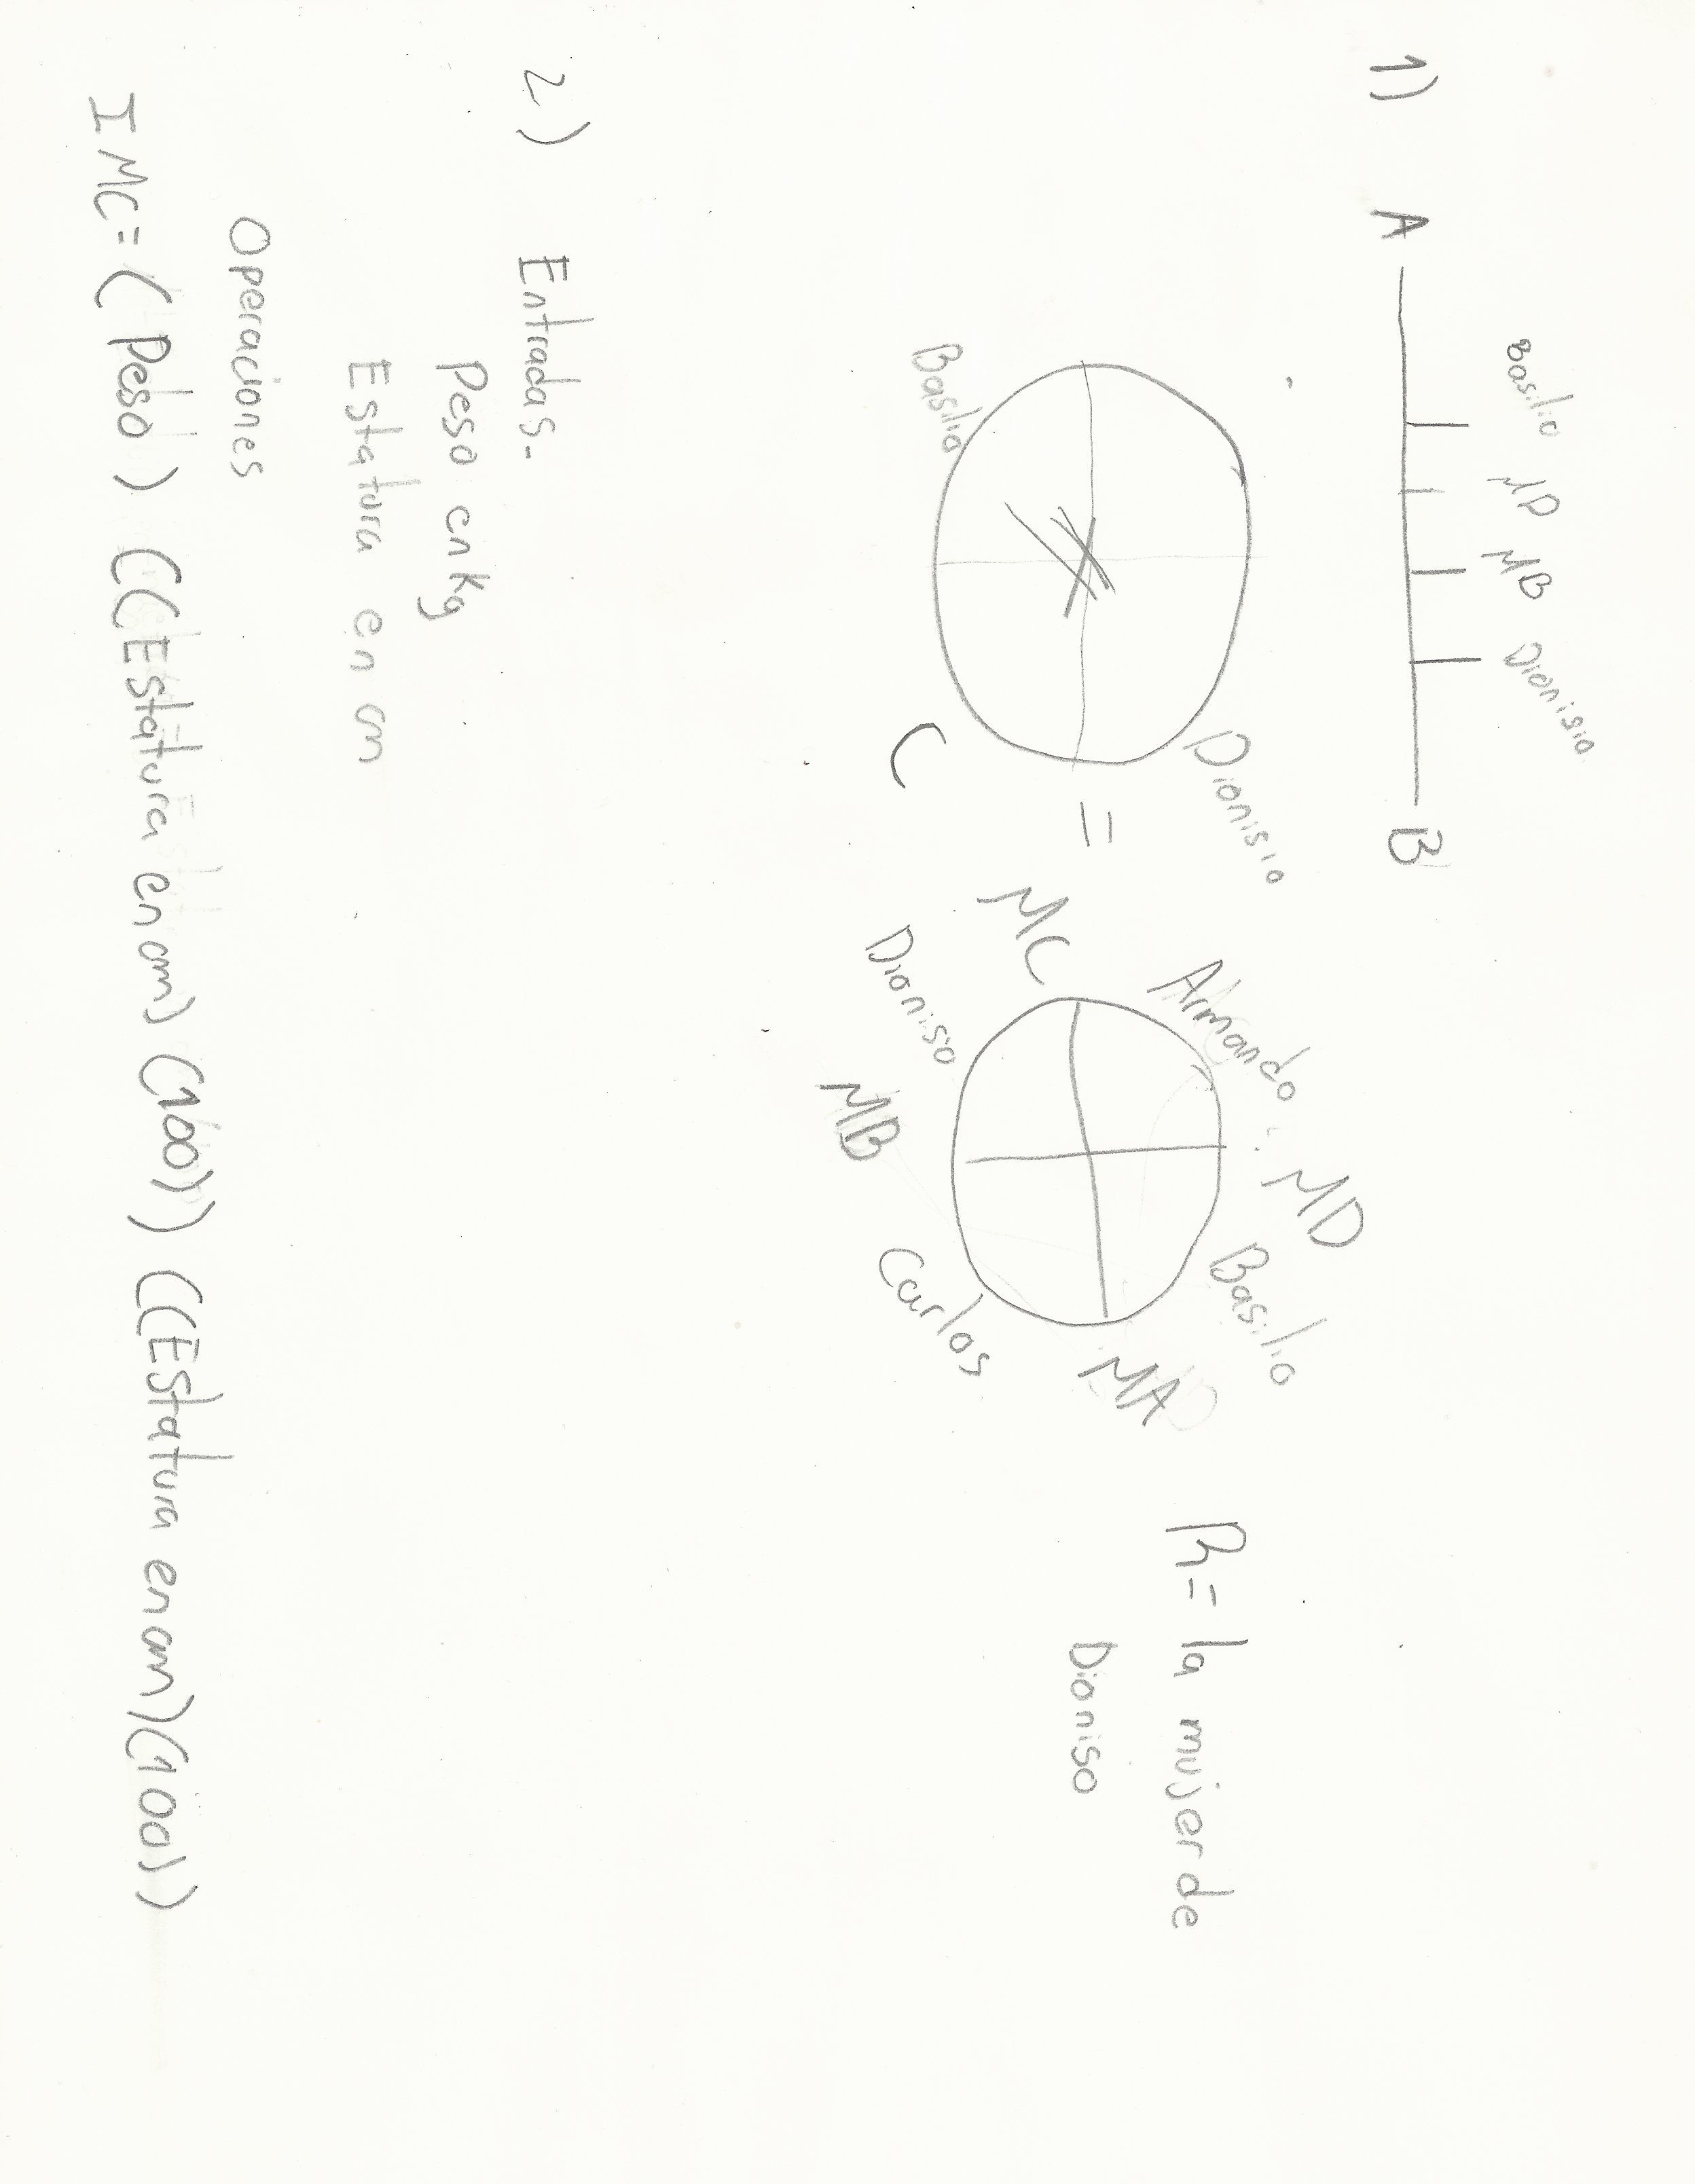 1)
A B
Basilio MD MB Dionisio
Basilio
Dionisio
C =
MC
Armando
MD
Basilio
MA
Carlos
MB
Dioniso
R= la mujer de
Dioniso
2) Entradas.
Peso en kg
Estatura en cm
Operaciones
IMC= (Peso) ((Estatura en cm) (100)) ((Estatura en cm)(100))